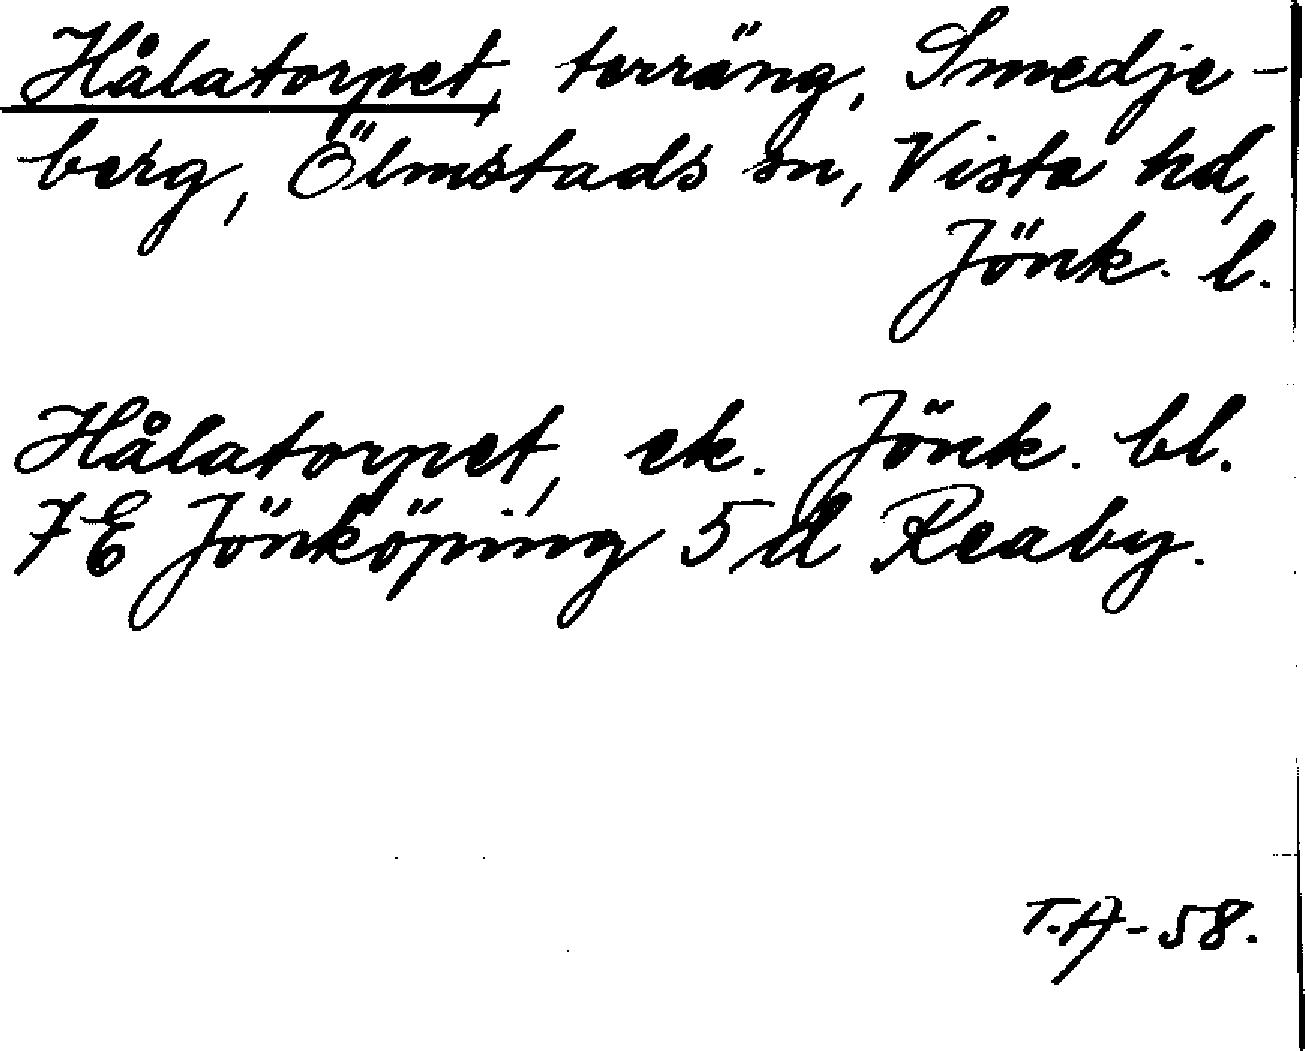 Hålatorpet, terräng, Smedje-
berg, Ölmstads sn, Vista hd,
Jönk. l.
Hålatorpet, ek. Jönk. bl.
7E Jönköping 5 d Reaby.
T.A-58.